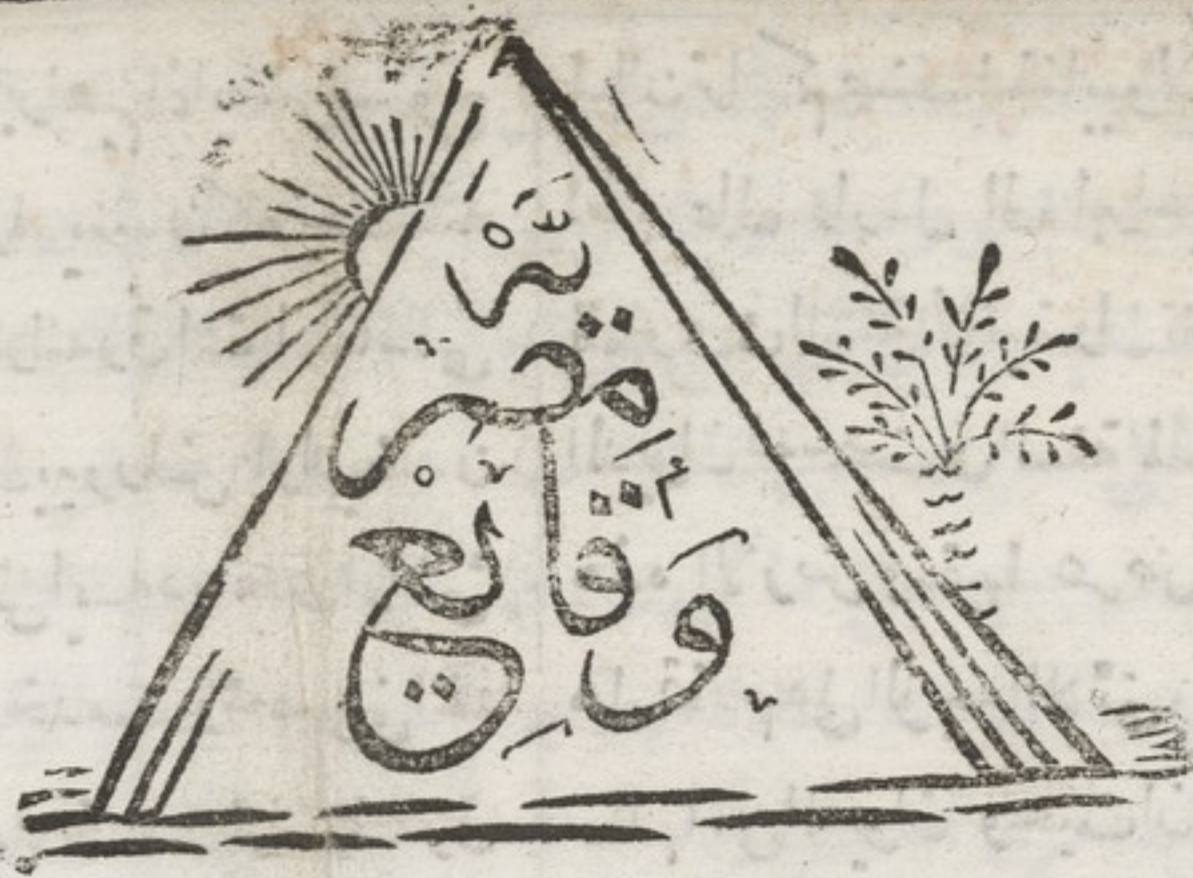 وَقَايع
مصر
يه